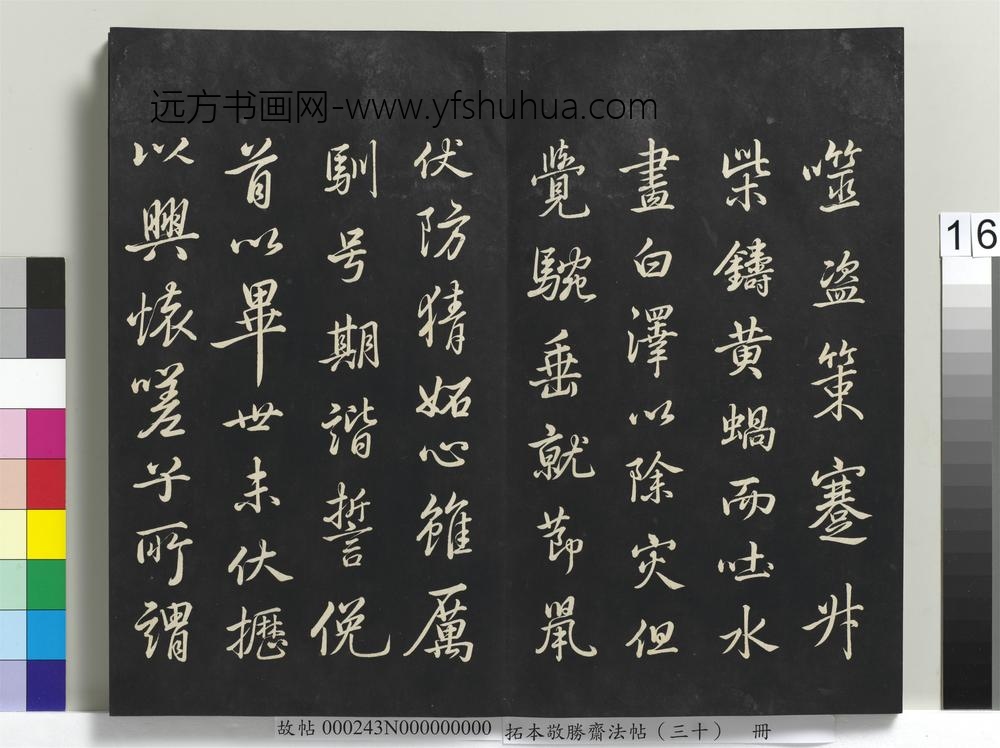 远方书画网-www.yfshuhua.com
噬盗策蹇
柴鑄黄蝸而吐水
畫白澤以除灾但
覺垂就節
伏防猜妬心雖厲
馴号期諧誓俛
首以畢世未伏攊
以興懷嗟乎所謂
16
故帖 000243N000000000 拓本敬勝齋法帖（三十） 冊